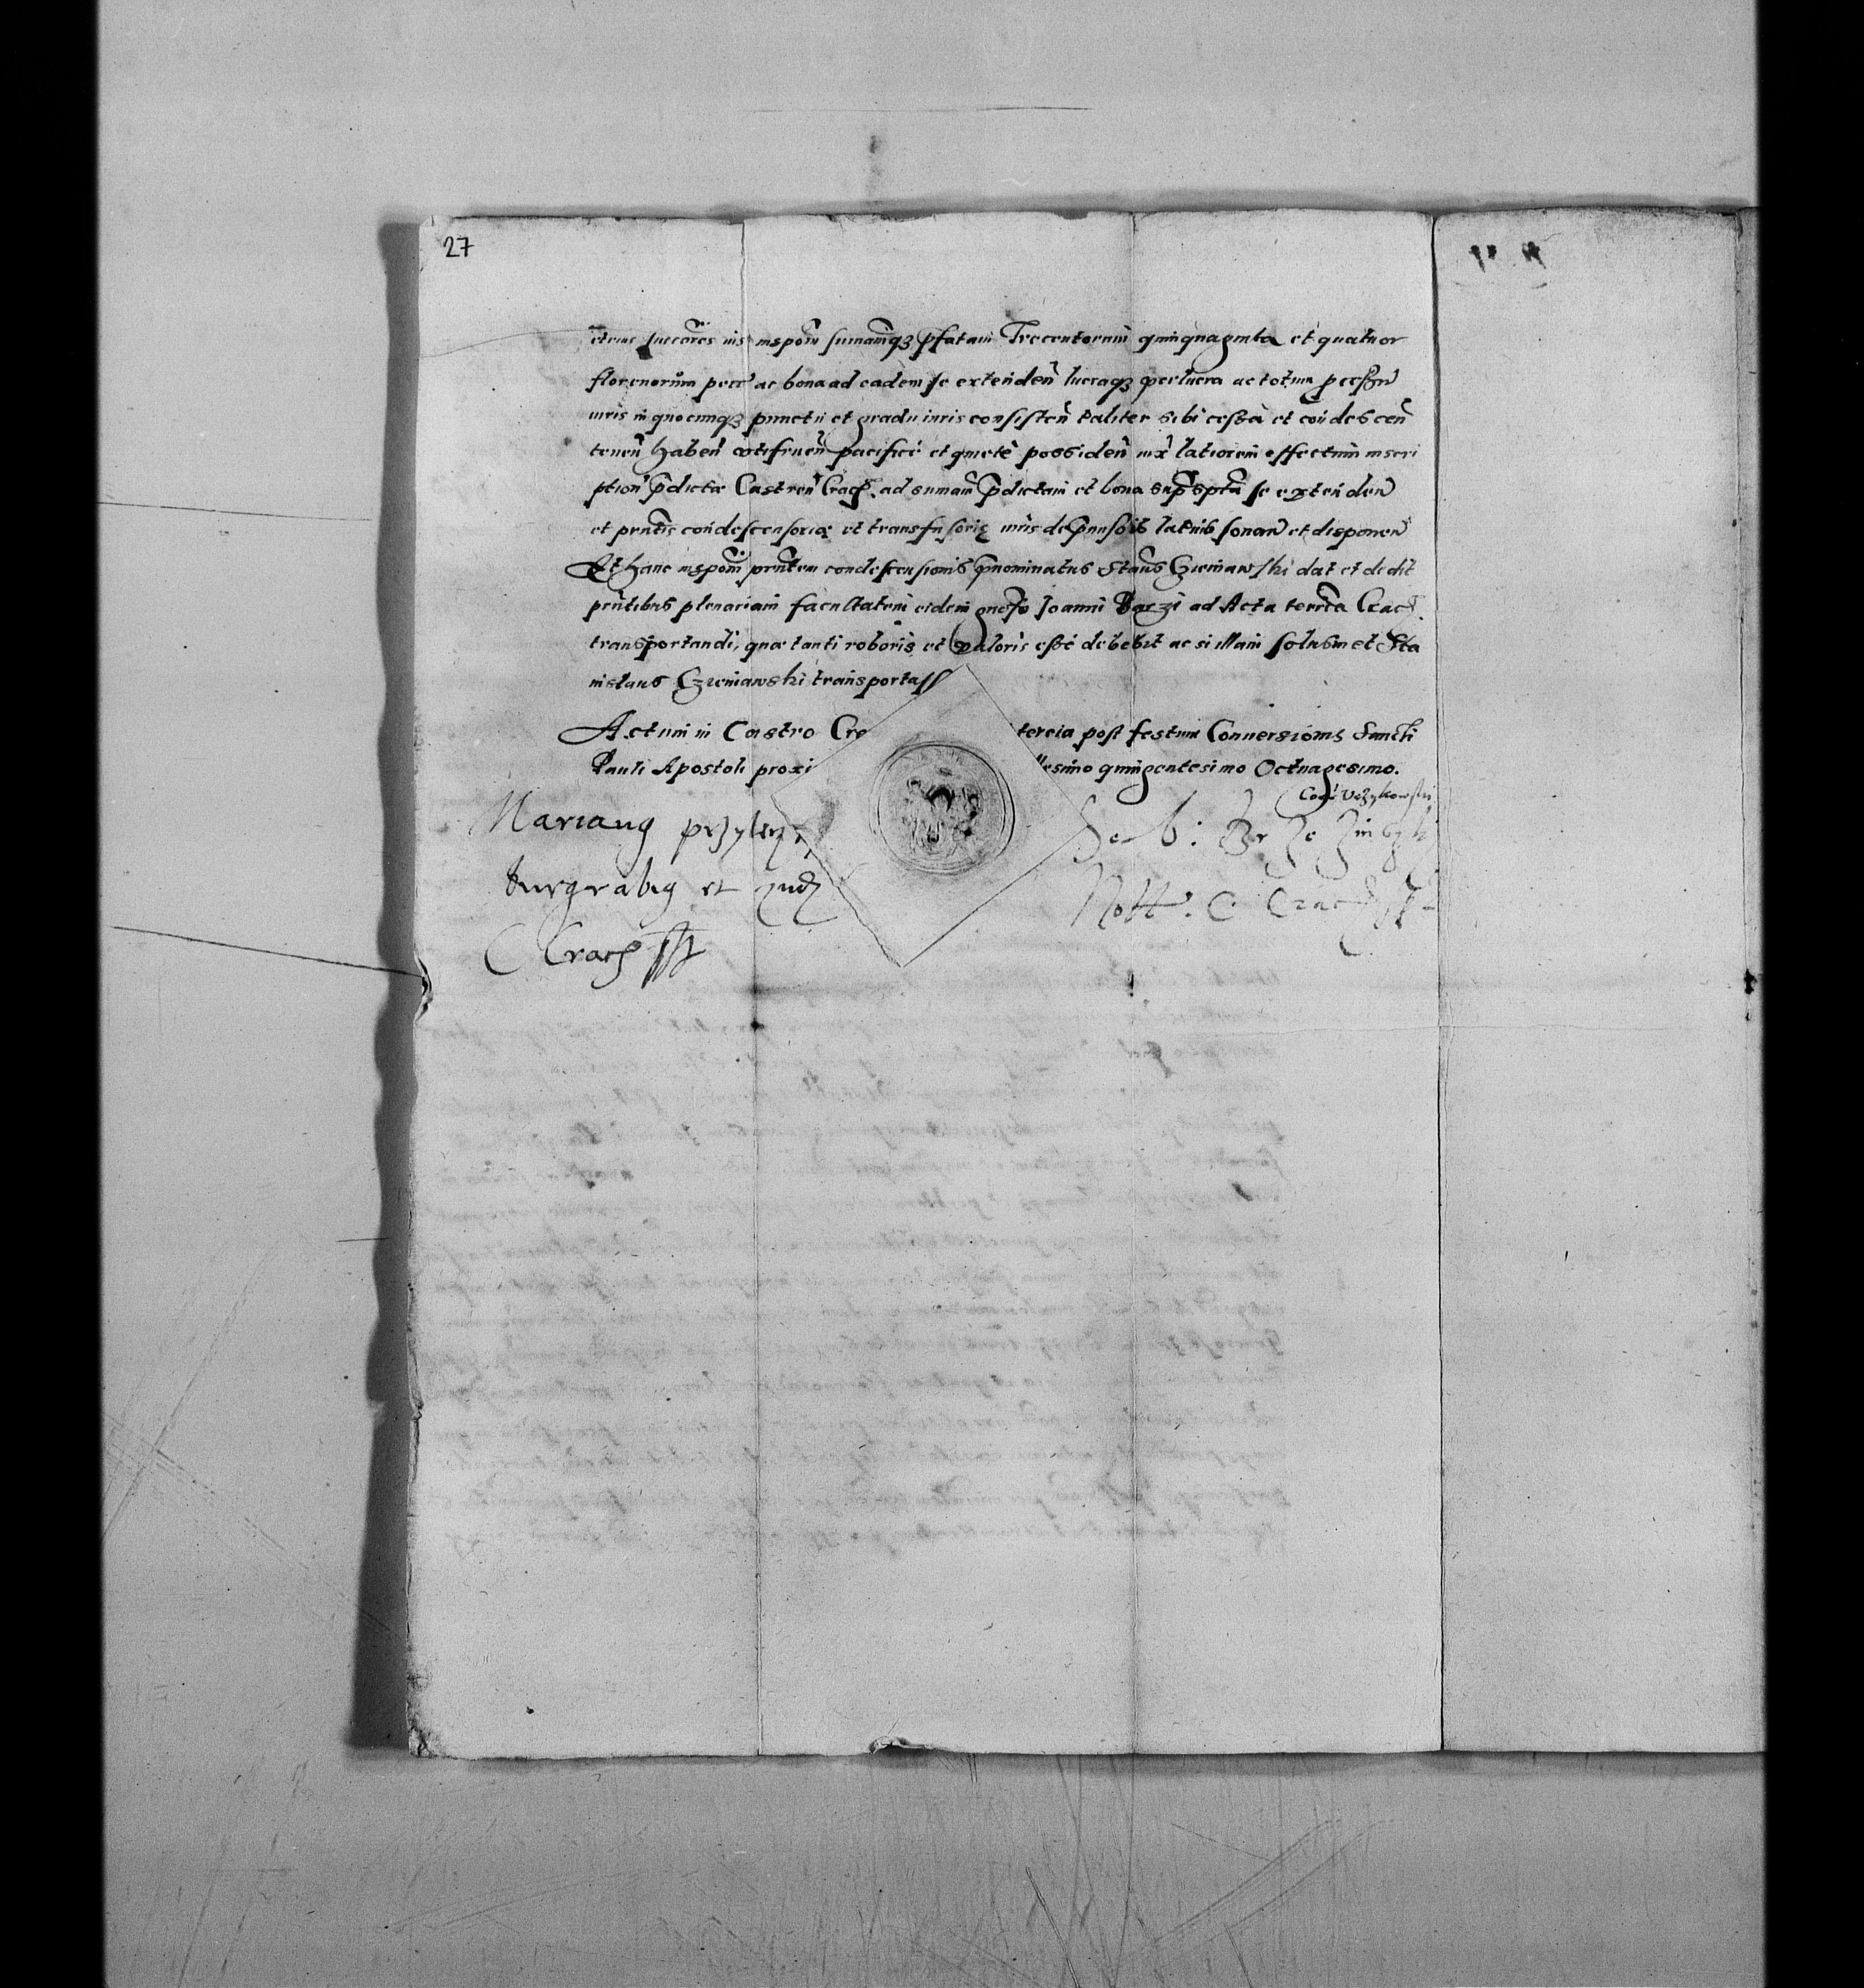 27
successores ius inscriptõm sumamq₃ p̃fatam Trecentorum quinquaginta et quatuor
florenorum pecc̃ ac bona ad eadem se extendeñ lucraq₃ perlucra ac totum
iuris in quocunq₃ punctu et gradu iuris consisteñ taliter sibi cessa et condesceñ
teneñ habeñ utifrueñ pacifice et quiete possideñ iux̃ latiorem effectum inscri
ption̄ p̃dictæ Castreñ Crac̃. ad sumam p̃dictam et bona se extendeñ
et pñtis condescensoriæ et transfusoriæ iuris latius sonañ et disponeñ
Et hanc pñtem condescensionis p̃nominatus Stañs Czerniawski dat et dedit
pñtibus plenariam facultatem eidem gnõso Joanni Barzi ad Acta terrẽa Crac̃.
transportandi, quæ tanti roboris et valoris esse debebit ac si illam solusmet Sta
nislaus Czerniawski transportass
Actum in Castro Cra tercia post festum Conversionis Sancti
Pauli Apostoli proxi llesimo quingentesimo Octuagesimo.
Marianus przylen
burgrabius et Jud
C Crac̃ sst
Seb:
Nott. C Crac